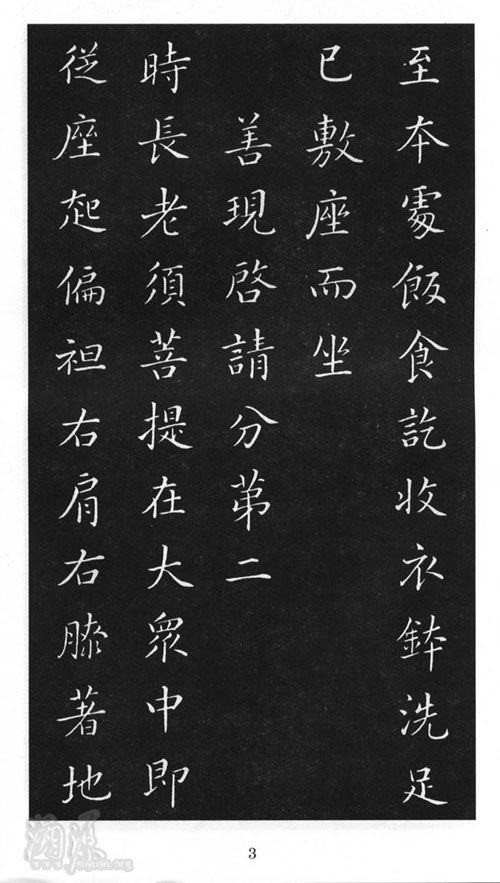 至本處飯食訖收衣鉢洗足
已敷座而坐
善現啓請分第二
時長老須菩提在大眾中即
從座起偏袒右肩右膝著地
溯源
www.suyuan.org
3